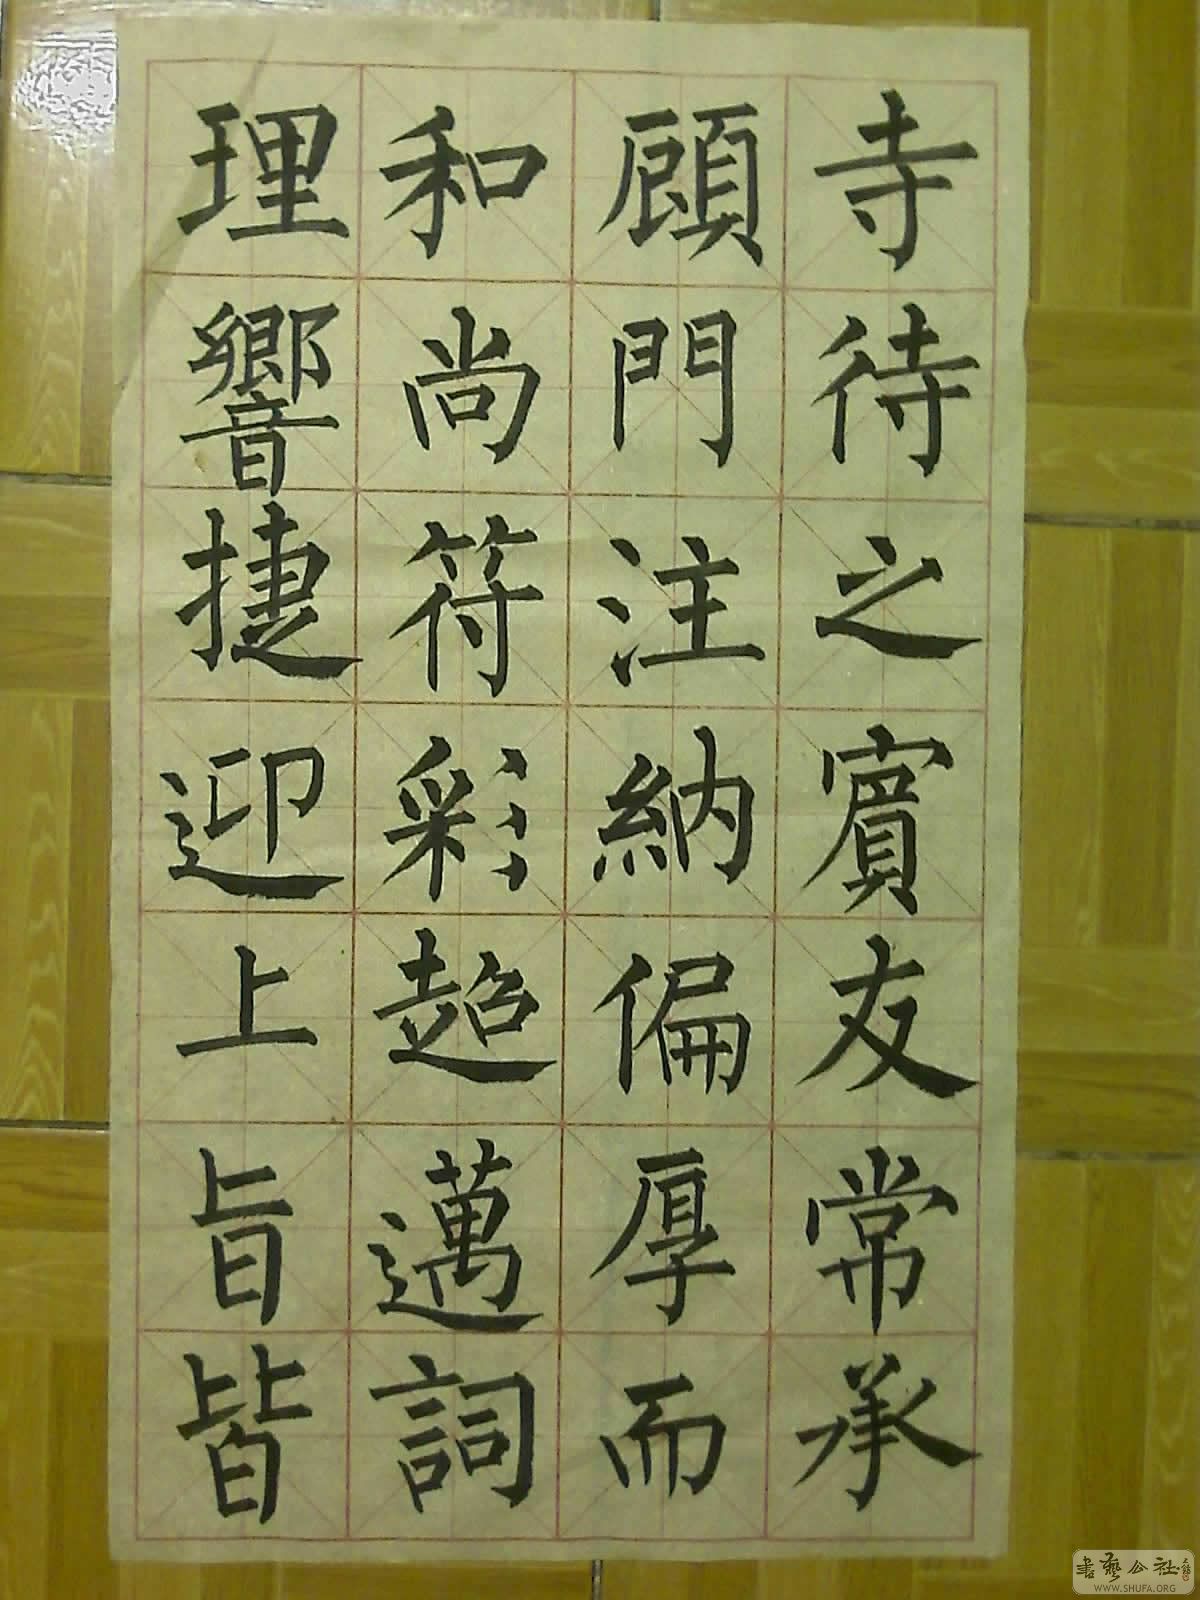 寺待之賓友常承
顧門注納偏厚而
和尚符彩超邁詞
理響捷迎上旨皆
書藝公社
WWW.SHUFA.ORG